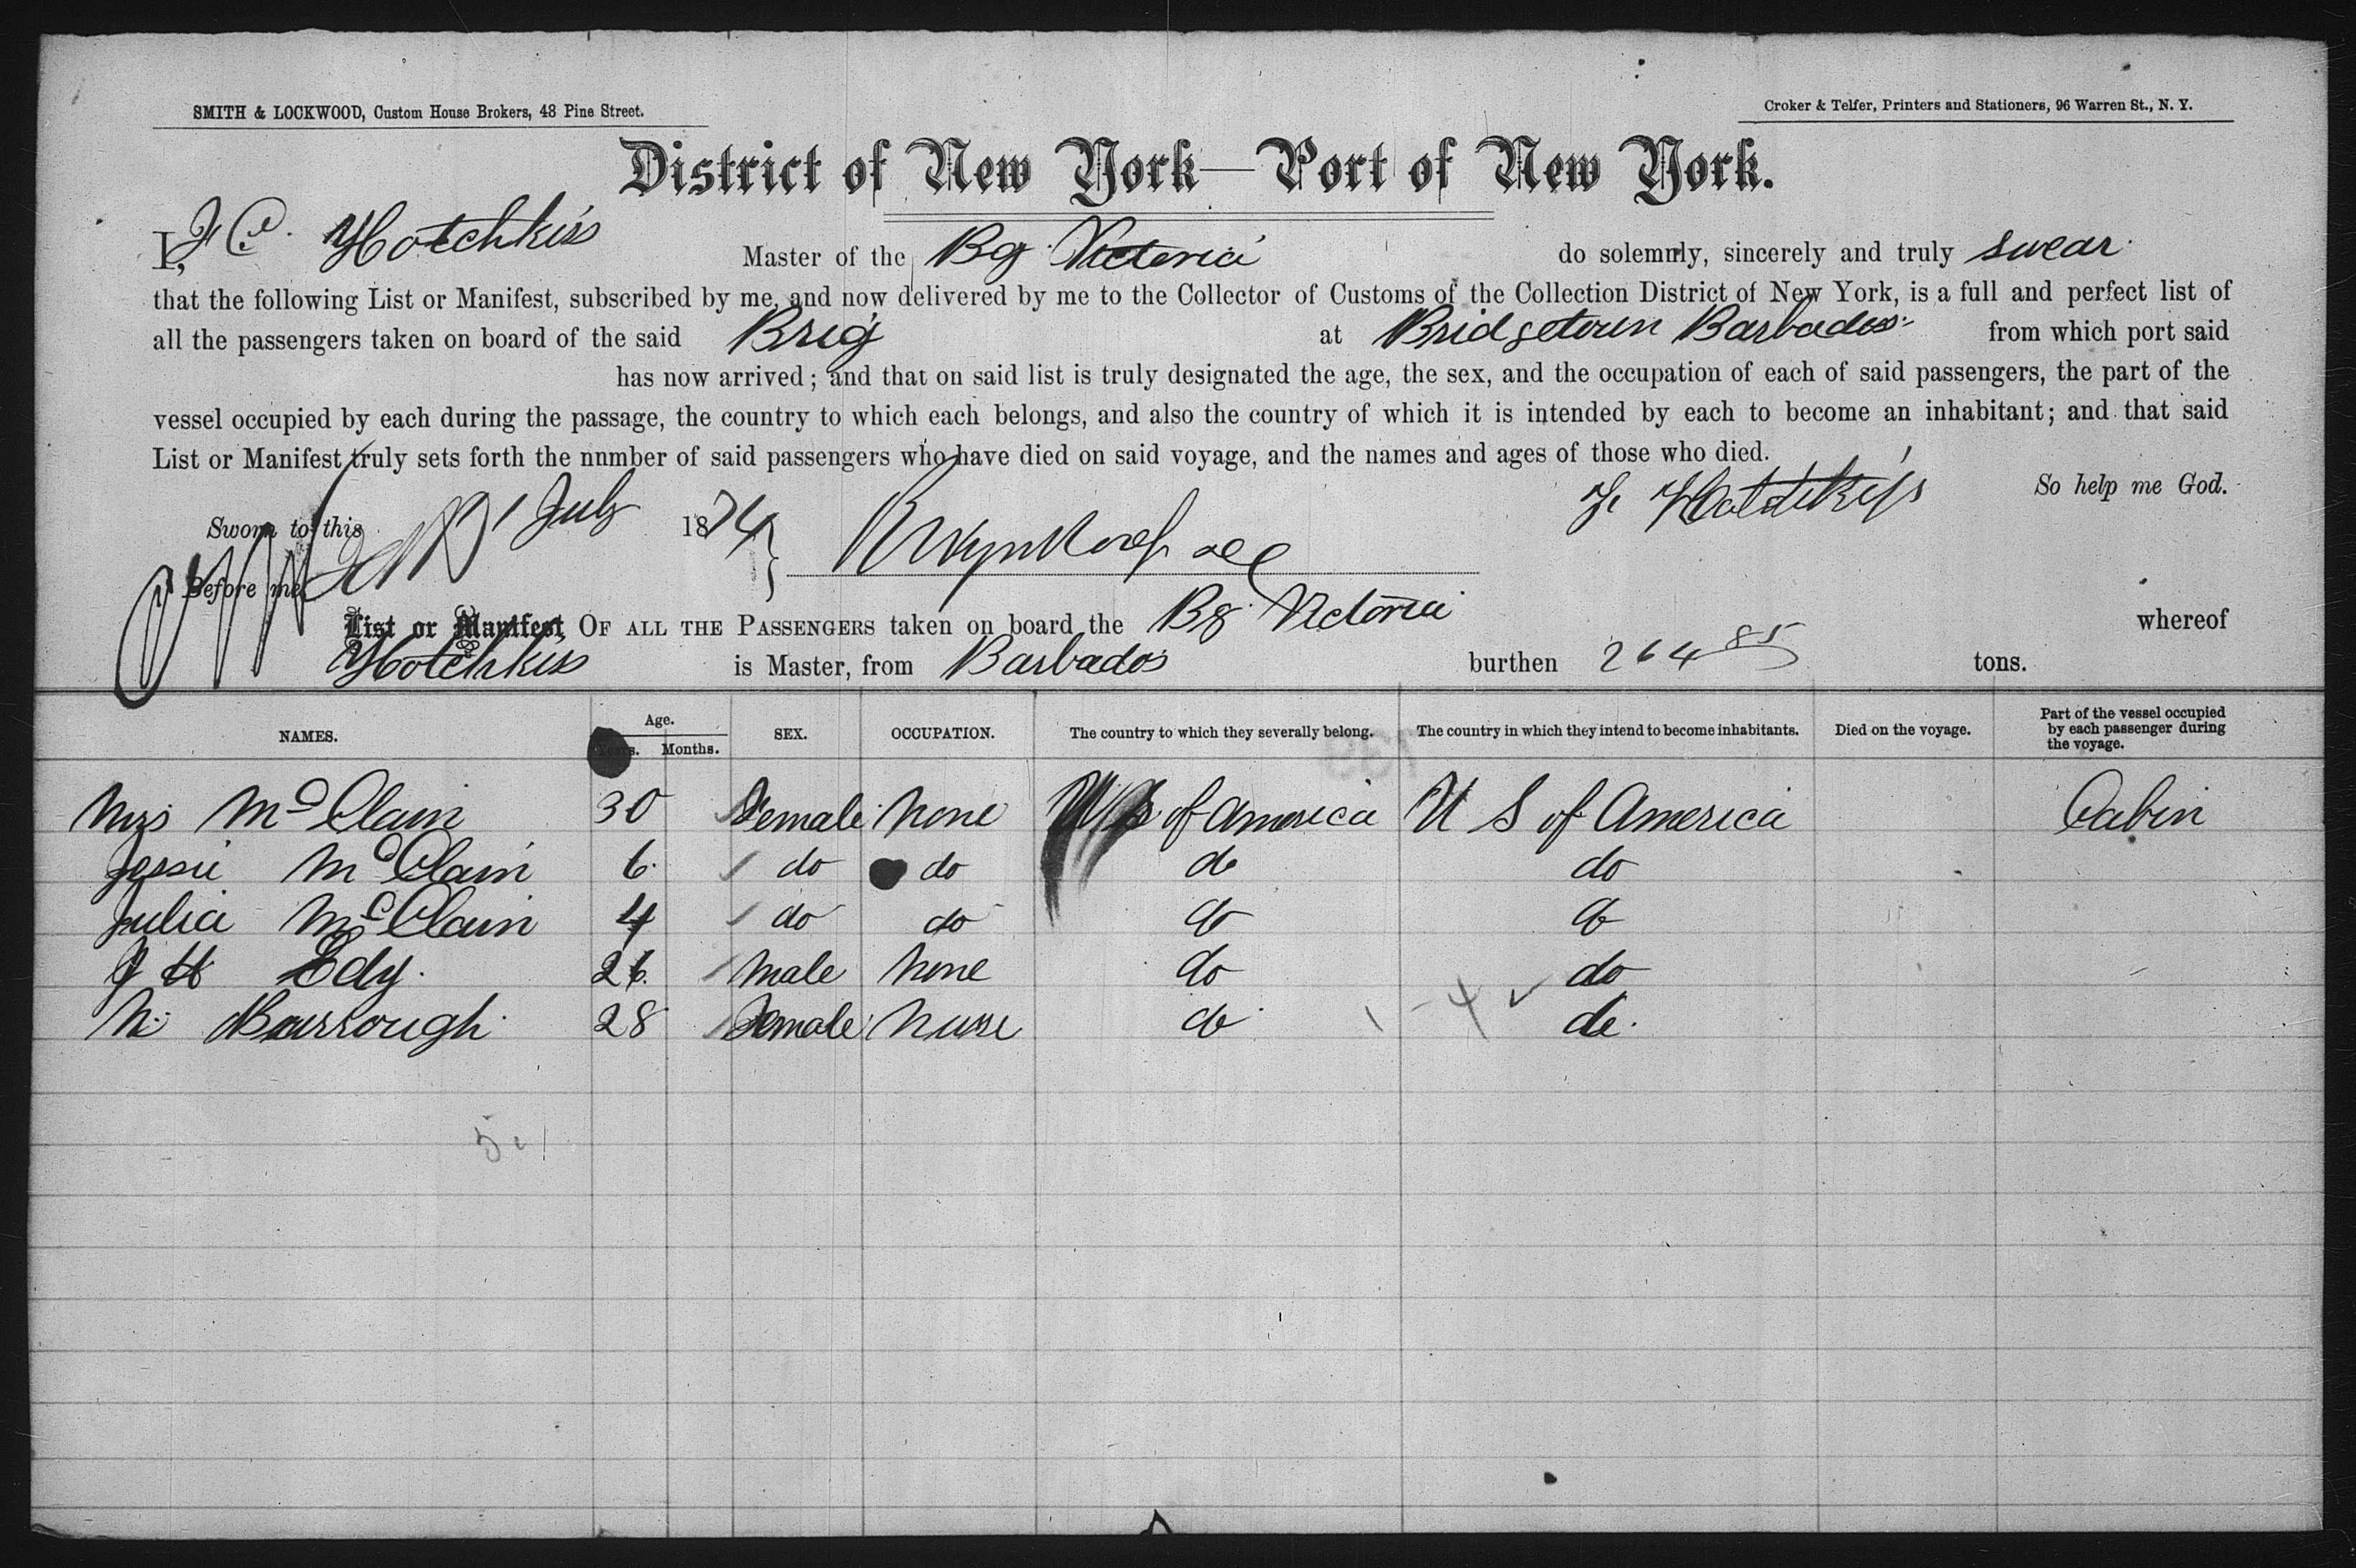 SMITH & LOCKWOOD, Custom House Brokers, 48 Pine Street.
Croker & Telfer, Printers and Stationers, 96 Warren St., N. Y.
District of New York—Port of New York.
I, J C. Hotchkiss Master of the Bg Victoria do solemnly, sincerely and truly swear
that the following List or Manifest, subscribed by me, and now delivered by me to the Collector of Customs of the Collection District of New York, is a full and perfect list of
all the passengers taken on board of the said Brig at Bridgetown Barbados from which port said
has now arrived; and that on said list is truly designated the age, the sex, and the occupation of each of said passengers, the part of the
vessel occupied by each during the passage, the country to which each belongs, and also the country of which it is intended by each to become an inhabitant; and that said
List or Manifest truly sets forth the nnmber of said passengers who have died on said voyage, and the names and ages of those who died.
Hotchkiss So help me God.
Sworn to this 1 July 1874
Before me
List or Manifest OF ALL THE PASSENGERS taken on board the Bg. Victoria whereof
Hotchkiss is Master, from Barbados burthen 264 85 tons.
NAMES. Age. Years. Months. SEX. OCCUPATION. The country to which they severally belong. The country in which they intend to become inhabitants. Died on the voyage. Part of the vessel occupied by each passenger during the voyage.
Mrs McClain 30 Female None U S of America U S of America Cabin
Jessie McClain 6 do do do do
Julia McClain 4 do do do do
J H Edy. 26 Male None do do
N. Burrough 28 Female Nurse do do